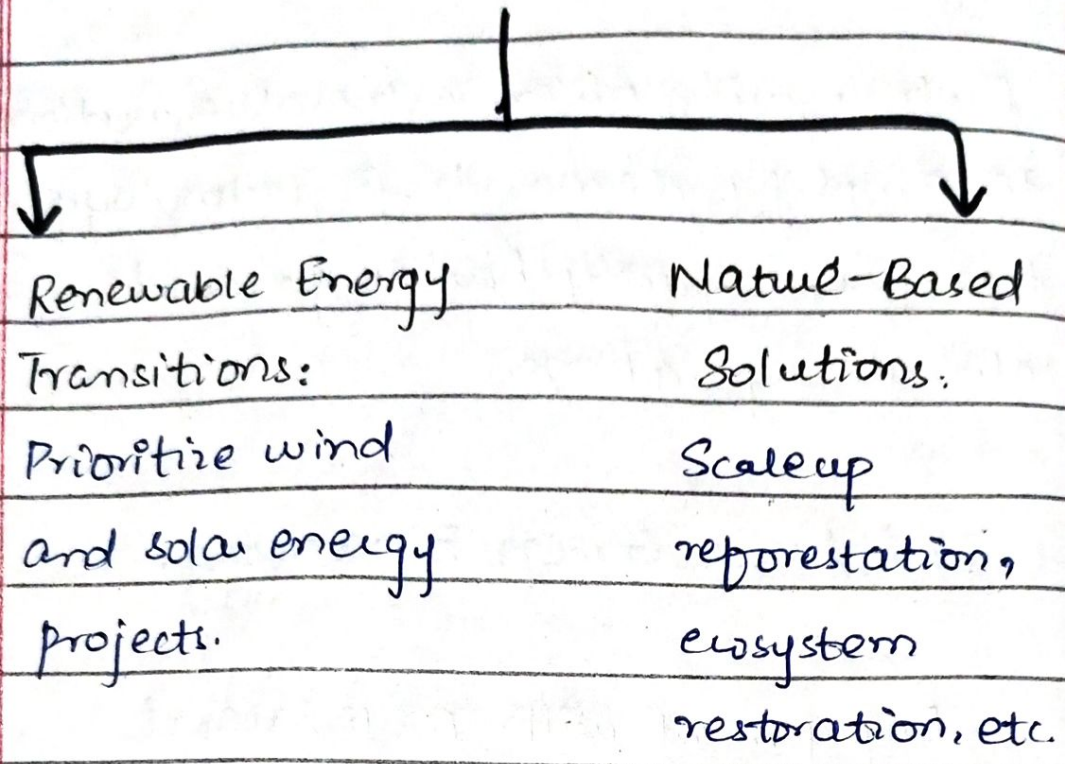 Renewable Energy
Transitions:
Prioritize wind
and solar energy
projects.
Nature-Based
Solutions.
Scaleup
reforestation,
ecosystem
restoration, etc.